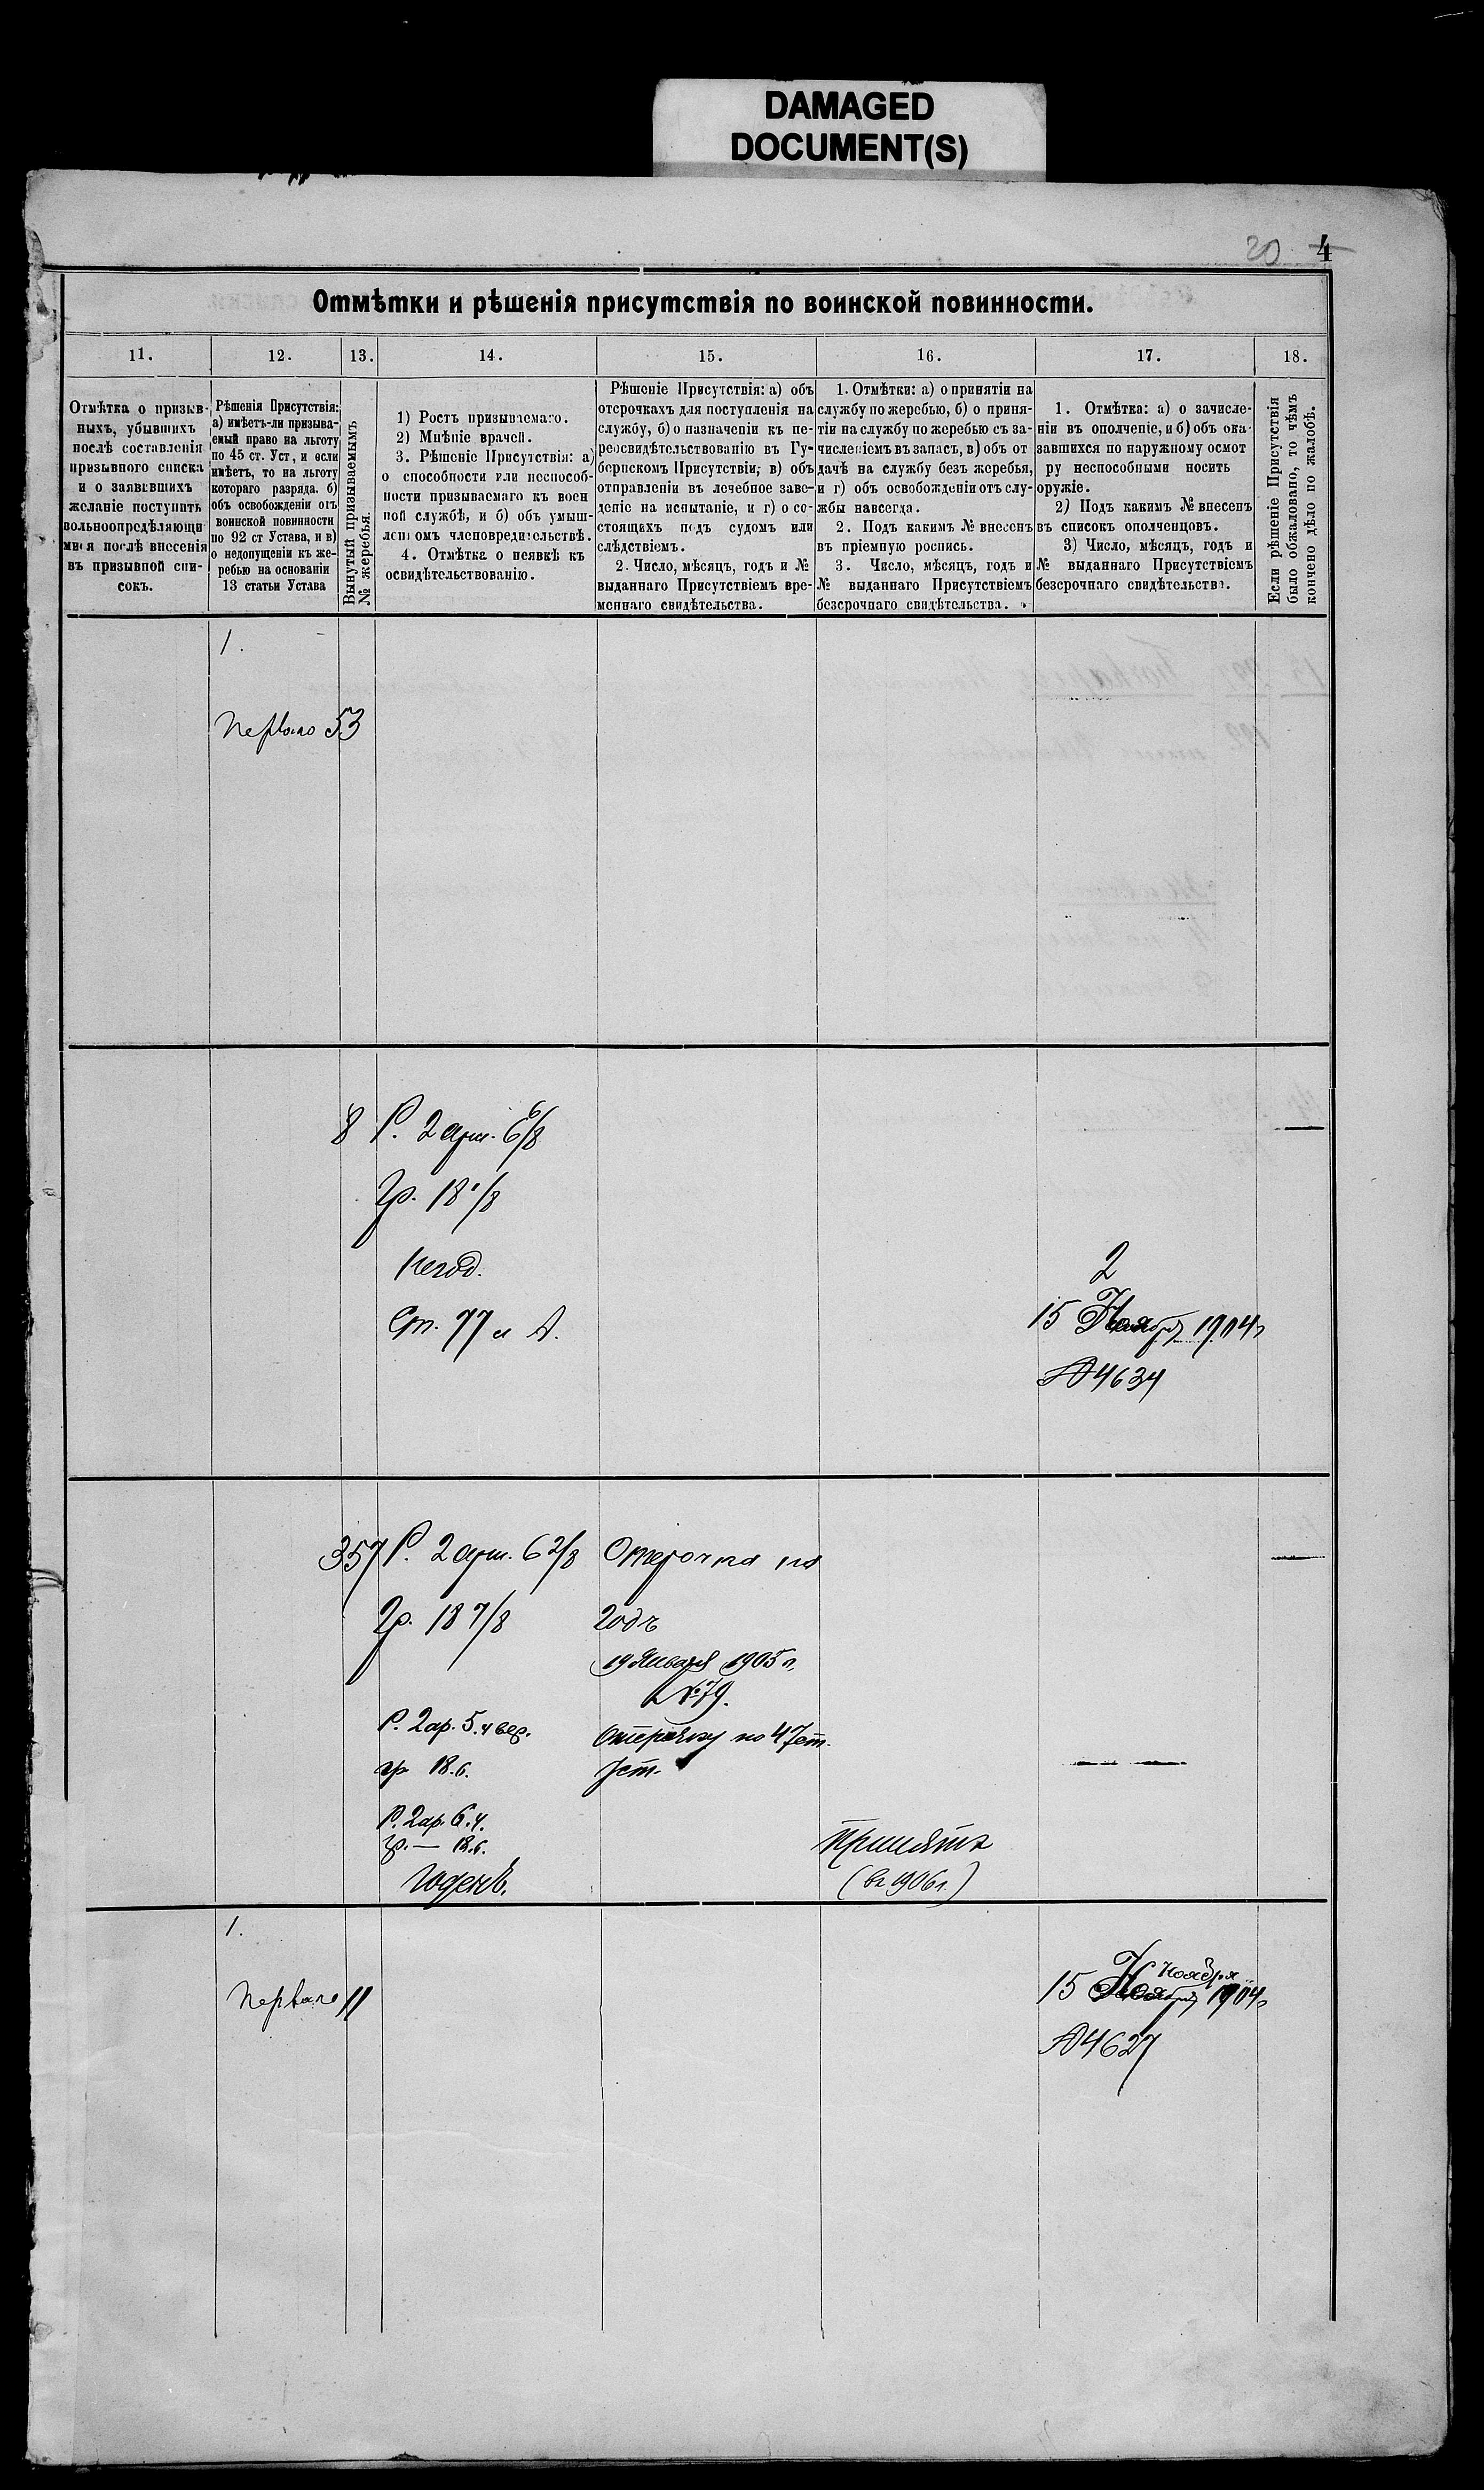 DAMAGED
DOCUMENT(S)
20 4
Отмѣтки и рѣшенія присутствія по воинской повинности.
11.
12.
13.
14.
15.
16.
17.
18.
Отмѣтка о призыв-
ныхъ, убывшихъ
послѣ составленія
призывного списка
и о заявившихъ
желаніе поступить
вольноопредѣляющи
мися послѣ внесенія
въ призывной спи-
сокъ.
Рѣшенія Присутствія:
а) имѣетъ-ли призыва-
емый право на льготу
по 45 ст. Уст, и если
имѣетъ, то на льготу
котораго разряда. б)
объ освобожденіи отъ
воинской повинности
по 92 ст Устава, и в)
о недопущеніи къ же-
ребью на основаніи
13 статьи Устава
Вынутый призываемымъ
№ жеребья.
1) Ростъ призываемаго.
2) Мнѣніе врачей.
3. Рѣшеніе Присутствія: а)
о способности или неспособ-
ности призываемаго къ воен
ной службѣ, и б) объ умыш-
ленномъ членовредительствѣ.
4. Отмѣтка о неявкѣ къ
освидѣтельствованію.
Рѣшеніе Присутствія: а) объ
отсрочкахъ для поступленія на
службу, б) о назначеніи къ пе-
реосвидѣтельствованію въ Гу-
бернскомъ Присутствіи; в) объ
отправленіи въ лечебное заве-
деніе на испытаніе, и г) о со-
стоящихъ подъ судомъ или
слѣдствіемъ.
2. Число, мѣсяцъ, годъ и №
выданнаго Присутствіемъ вре-
меннаго свидѣтельства.
1. Отмѣтки: а) о принятіи на
службу по жеребью, б) о приня-
тіи на службу по жеребью съ за-
численіемъ въ запасъ, в) объ от
дачѣ на службу безъ жеребья,
и г) объ освобожденіи отъ слу-
жбы навсегда.
2. Подъ какимъ № внесенъ
въ пріемную роспись.
3. Число, мѣсяцъ, годъ и
№ выданнаго Присутствіемъ
безсрочнаго свидѣтельства.
1. Отмѣтка: а) о зачисле-
ніи въ ополченіе, и б) объ ока-
завшихся по наружному осмот
ру неспособными носить
оружіе.
2) Подъ какимъ № внесенъ
въ списокъ ополченцовъ.
3) Число, мѣсяцъ, годъ и
№ выданнаго Присутствіемъ
безсрочнаго свидѣтельства.
Если рѣшеніе Присутствія
было обжаловано, то чѣмъ
кончено дѣло по жалобѣ.
1.
Перваго 53
8 Р. 2 арш. 6 6/8
Гр. 18 1/8
Негод.
Ст. 77 л А.
2
15 Ноября 1904 г
№ 4634
357 Р. 2 арш. 6 2/8 Отсрочка на
Гр. 18 7/8 годъ
19 Января 1905 г.
№ 79.
Р. 2 ар. 5.4 вер. Отсрочку по 47 ст.
гр 18.6. Уст.
Р. 2 ар. 6.4.
гр. — 18.6. Принятъ
Годенъ. (въ 1906 г.)
1.
Перваго 11
Ноября
15 Ноября 1904 г
№ 4627